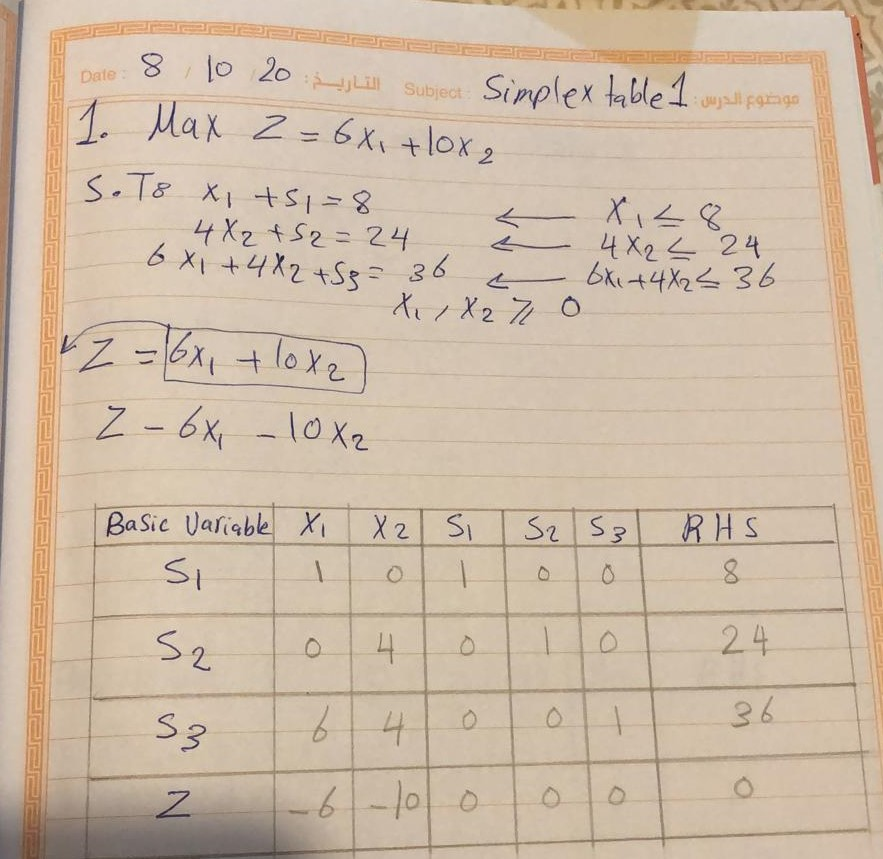 Date: 8 / 10 20 التاريخ: Subject: Simplex table 1 موضوع الدرس:
1. Max Z = 6x₁ + 10x₂
S.T: x₁ + s₁ = 8 ← x₁ ≤ 8
4x₂ + s₂ = 24 ← 4x₂ ≤ 24
6x₁ + 4x₂ + s₃ = 36 ← 6x₁ + 4x₂ ≤ 36
x₁, x₂ ≥ 0
Z = 6x₁ + 10x₂
Z - 6x₁ - 10x₂
Basic Variable X₁ X₂ S₁ S₂ S₃ RHS
S₁ 1 0 1 0 0 8
S₂ 0 4 0 1 0 24
S₃ 6 4 0 0 1 36
Z -6 -10 0 0 0 0